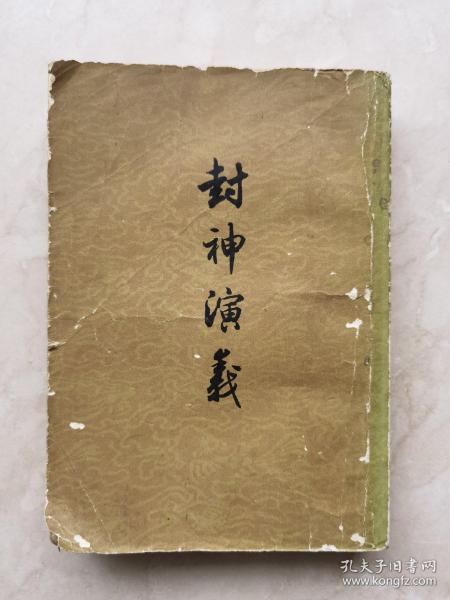 封神演義
孔夫子旧书网
www.kongfz.com